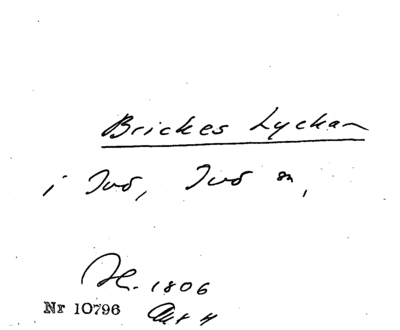 Brickes Lyckan
i Tvs, Tvs sn,
H. 1806
Nr 10796 Akt 4